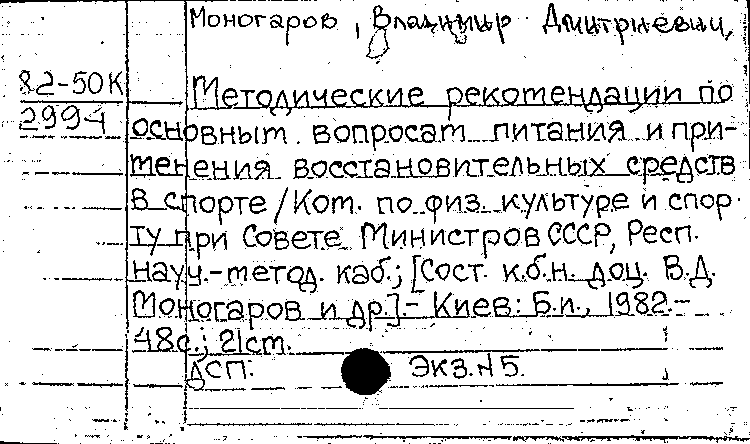 Моногаров, Владимир Дмитриевич,
82-50К
2994
Методические рекомендации по
основным вопросам питания и при-
менения восстановительных средств
в спорте / Ком. по физ. культуре и спор-
ту при Совете Министров СССР, Респ.
науч.-метод. каб.; [Сост. к.б.н. доц. В.Д.
Моногаров и др.].- Киев: Б.и., 1982.-
48с.; 21см.
ДСП: Экз.N5.